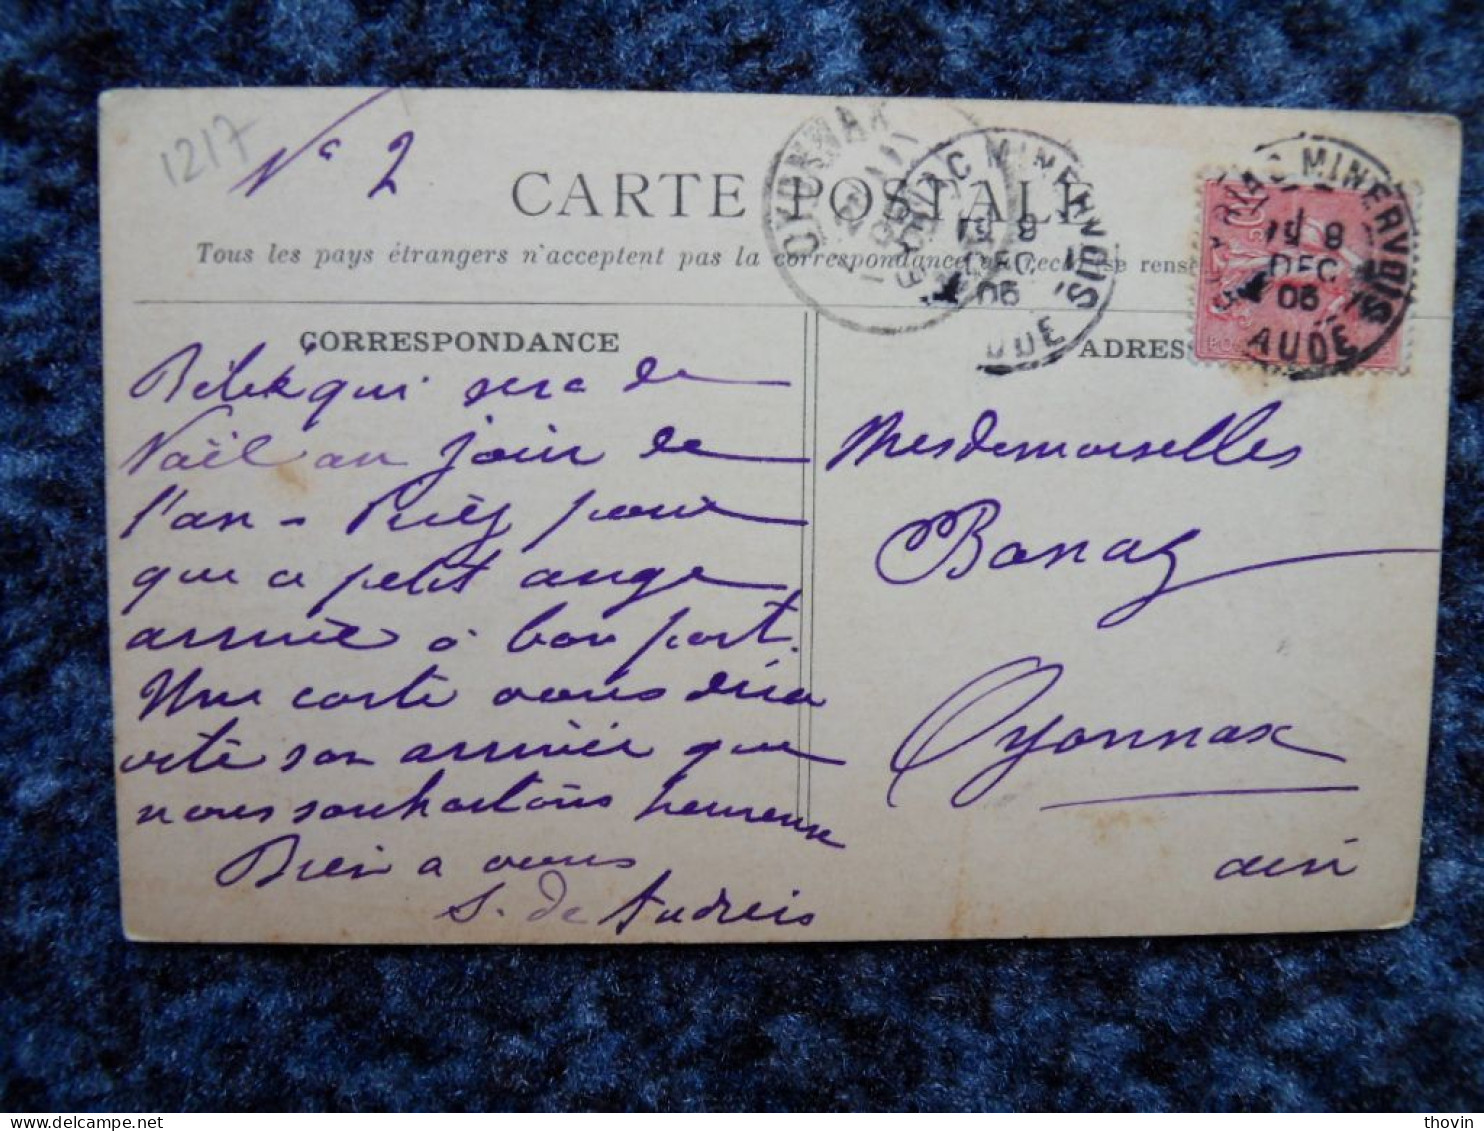 1217
Nº 2
CARTE POSTALE
Tous les pays étrangers n'acceptent pas la correspondance
CORRESPONDANCE
ADRES
OYONNAX
AC MINERVOIS
15 8
DEC
06
AUDE
AC MINERVOIS
15 8
DEC
06
AUDE
Bébé qui sera de
Noël au jour de
l'an - Priez pour
que ce petit ange
arrive à bon port.
Une carte vous dira
vite son arrivée que
nous souhaitons heureuse
Bien a vous
S. de Andreis
Mesdemoiselles
Bonaz
Oyonnax
ain
thovin